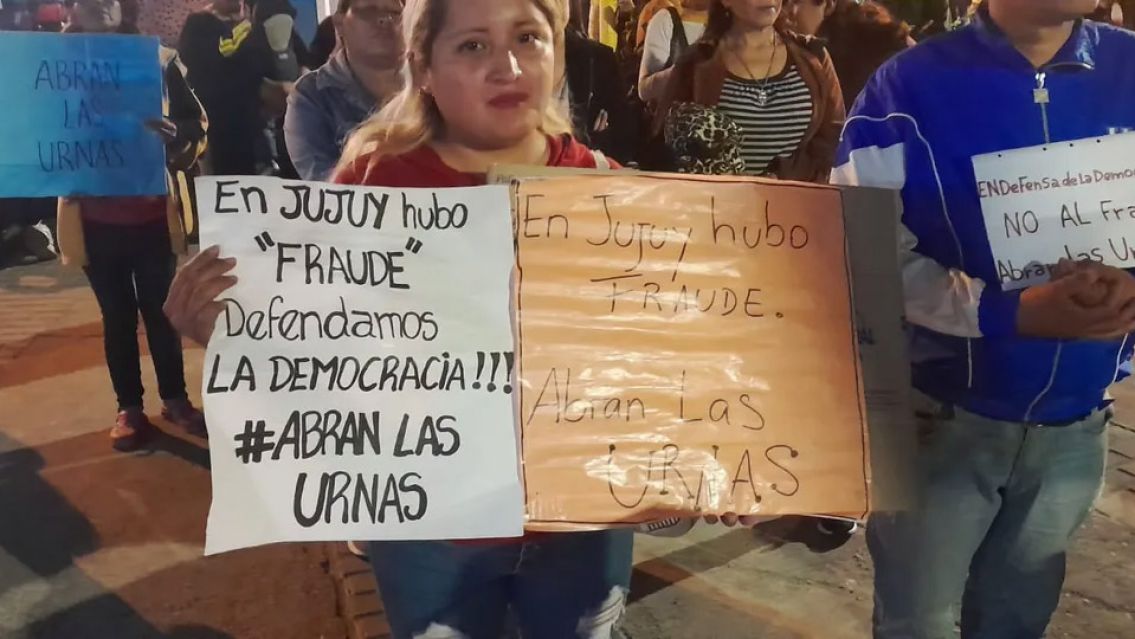 ABRAN
LAS
URNAS
En JUJUY hubo
"FRAUDE"
Defendamos
LA DEMOCRACIA!!!
#ABRAN LAS
URNAS
En Jujuy hubo
FRAUDE.
Abran Las
URNAS
EN DeFensa de La Democ
NO AL Fra
Abran las Ur